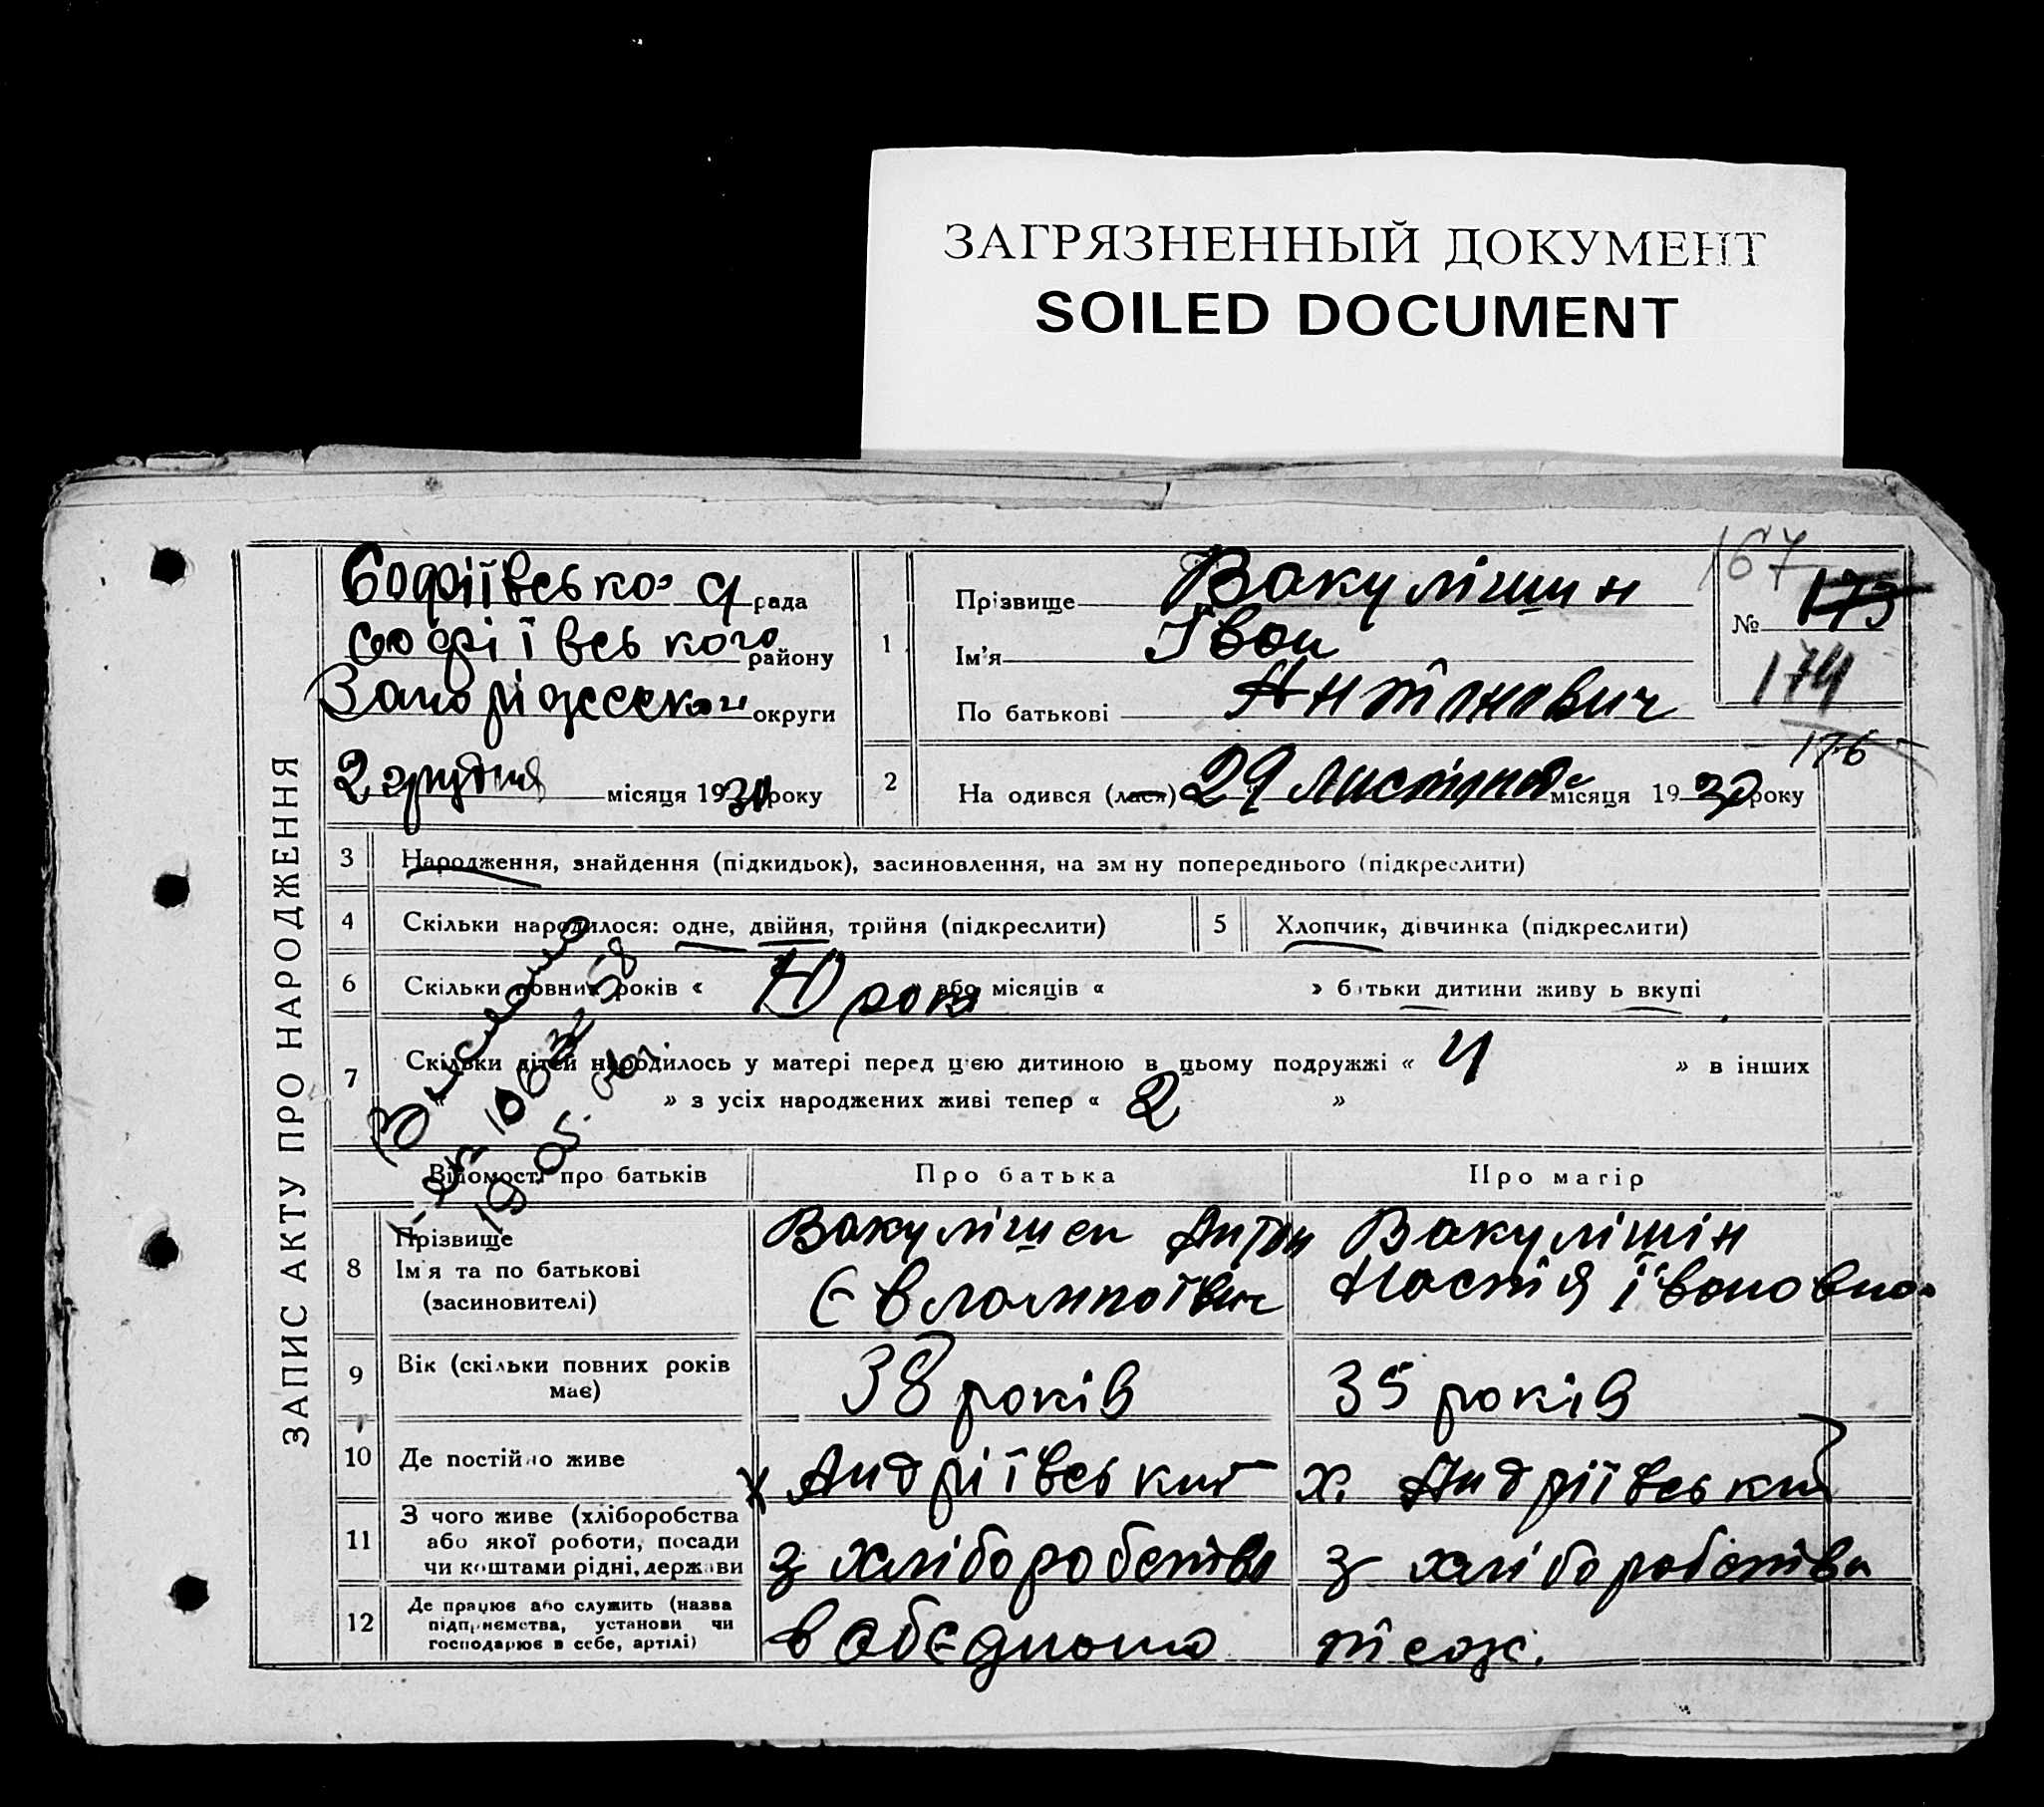 ЗАГРЯЗНЕННЫЙ ДОКУМЕНТ
SOILED DOCUMENT
ЗАПИС АКТУ ПРО НАРОДЖЕННЯ
Софіївська рада
Софіївського району
округи
2 грудня місяця 1930 року
1
Прізвище Вакулішин
Ім'я Іван
По батькові Антонович
167
№ 173
174
176
2
На одився (лася) 29 листопада місяця 1930 року
3 Народження, знайдення (підкидьок), засиновлення, на зм ну попереднього (підкреслити)
4 Скільки народилося: одне, двійня, трійня (підкреслити)
5 Хлопчик, дівчинка (підкреслити)
6 Скільки повних років « років » або місяців « » батьки дитини живу ь вкупі
7 Скільки дітей народилось у матері перед цією дитиною в цьому подружжі « 4 » в інших
» з усіх народжених живі тепер « 2 »
Відомості про батьків
Про батька
Про матір
8 Прізвище
Ім'я та по батькові
(засиновителі)
Вакулішен Антон
Євлампоївич
Вакулішін
Настія Івановна
9 Вік (скільки повних років має)
38 років
35 років
10 Де постійно живе
х Андріївський
х. Андріївський
11 З чого живе (хліборобства
або якої роботи, посади
чи коштами рідні, держави
з хліборобства
з хліборобства
12 Де працює або служить (назва
підприємства, установи чи
господарює в себе, артілі)
в обєднано
теж.